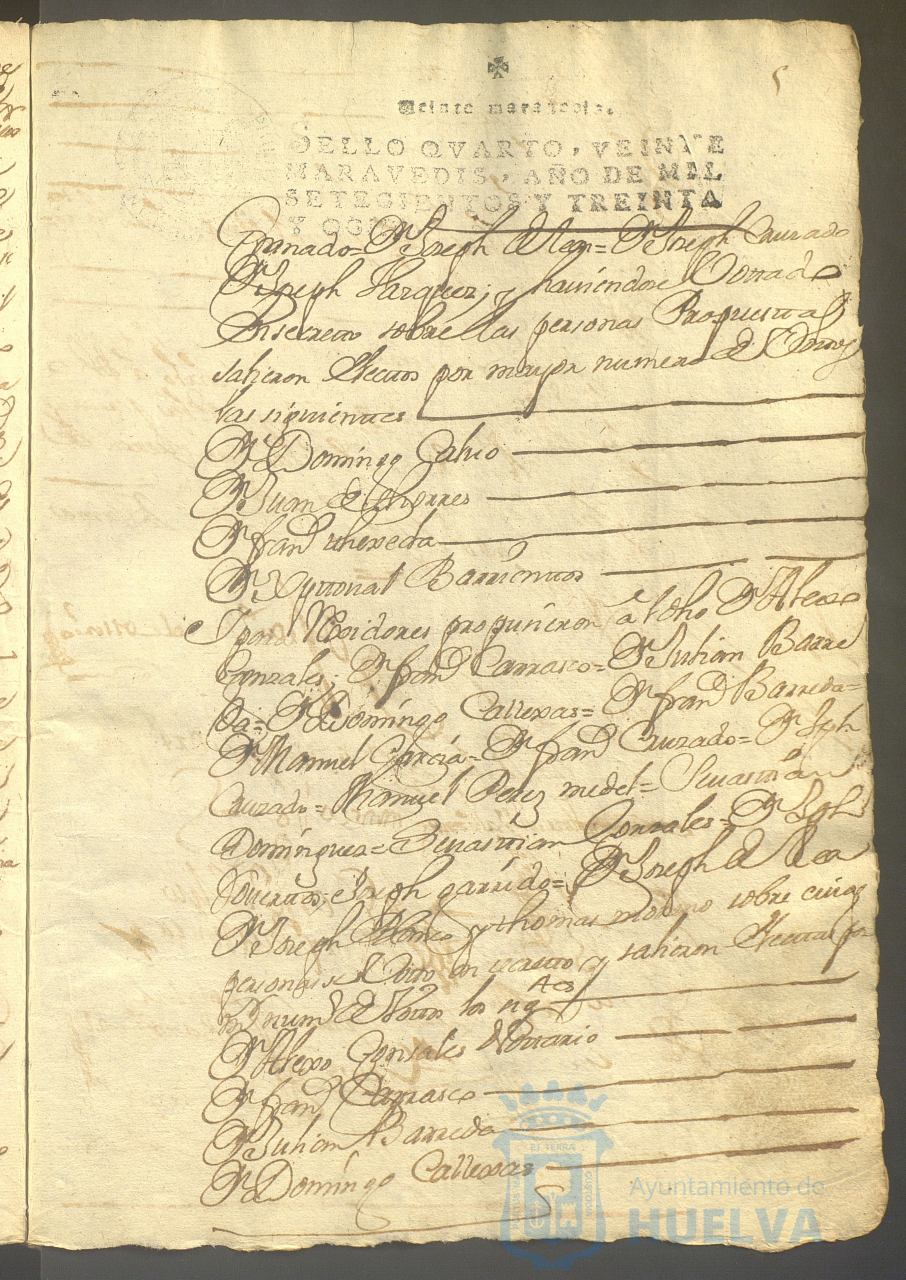 5
Veinte maravedis.
SELLO QVARTO, VEINTE
MARAVEDIS, AÑO DE MIL
SETECIENTOS Y TREINTA
Y OCHO
Granado = Dn Joseph de = Dn Joseph Cruzado
Dn Joseph Bazquez; y haviendose Votado
En secreto sobre las personas Propuestas
salieron Electos por mayor numero de Votos
los siguientes
Dn Domingo Calvo
Dn Juan de Thorres
Dn Frando Thexeda
Dn Xptoval Barrientos
Y para Rexidores propusieron a l dho Dn Alexo
Gonzales; Dn frando Carrasco = Dn Julian Barre
da = Dn Domingo Callexas = Dn frando Barreda =
Dn Manuel Garcia = Dn frando Cruzado = Dn Jph
Cruzado = Manuel Perez medel = Sevastian
Dominguez = Sevastian Gonzales = Dn Jph
Joseph garrido = Dn Joseph de
Dn Joseph Blanco y thomas moreno sobre cuias
personas se Voto en secreto y salieron Electas por
numo de Votos los sigtes
Dn Alexo Gonsales
Dn frando Carrasco
Dn Julian Barreda
Dn Domingo Callexas
Ayuntamiento de
HUELVA